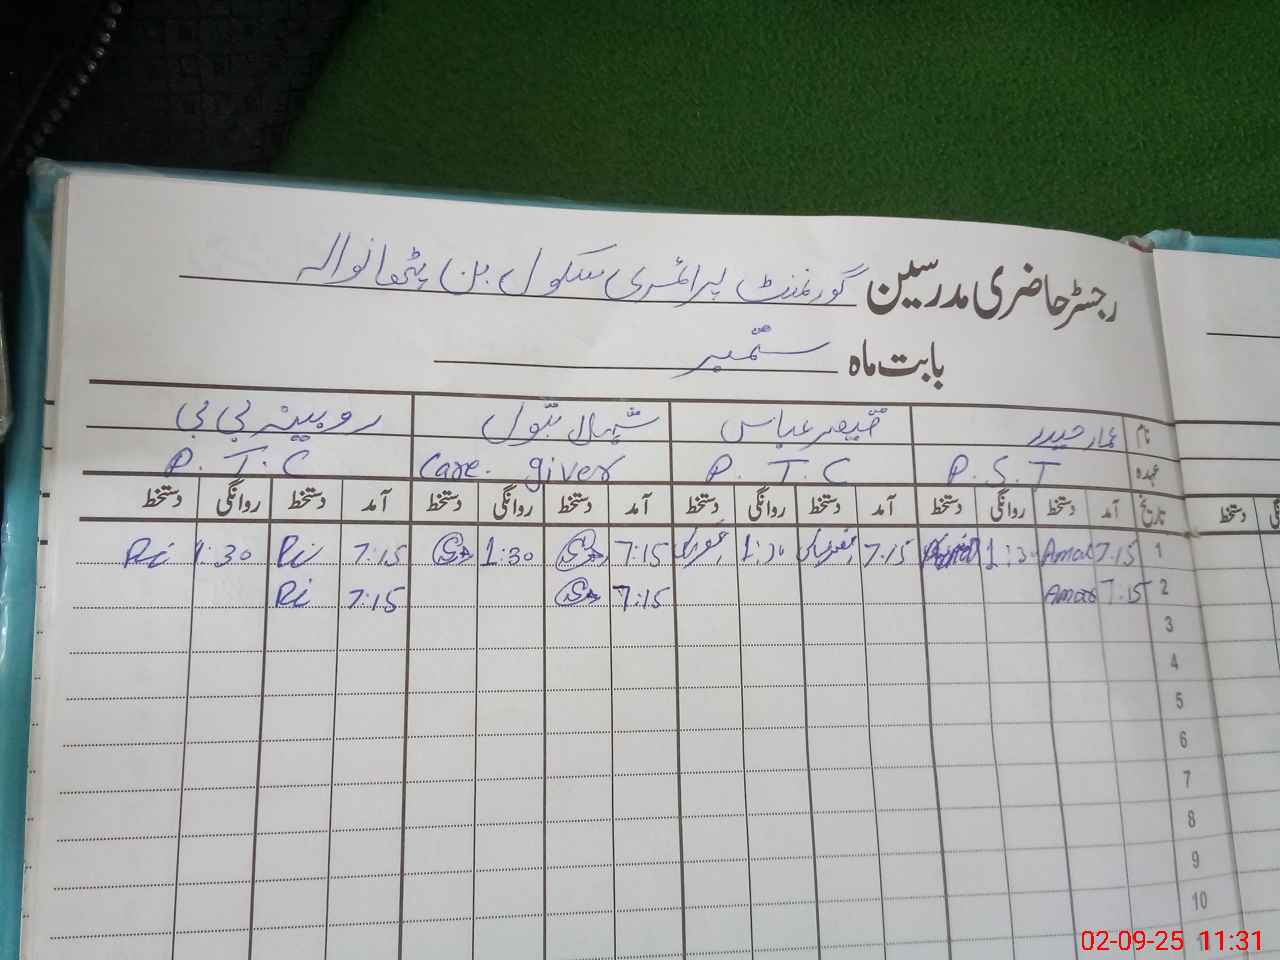 رجسٹر حاضری مدرسین گورنمنٹ پرائمری سکول بن پٹھانوالہ
بابت ماہ ستمبر
نام عمار حیدر قیصر عباس بتول روبینہ بی بی
عہدہ P.S.T P.T.C Care.giver P.T.C
تاریخ آمد دستخط روانگی دستخط آمد دستخط روانگی دستخط آمد دستخط روانگی دستخط آمد دستخط روانگی دستخط
1 7:15 1:30 7:15 1:30 7:15 1:30 7:15 Ri 1:30 Ri
2 7:15 7:15 7:15 Ri
3
4
5
6
7
8
9
10
دستخط
02-09-25 11:31